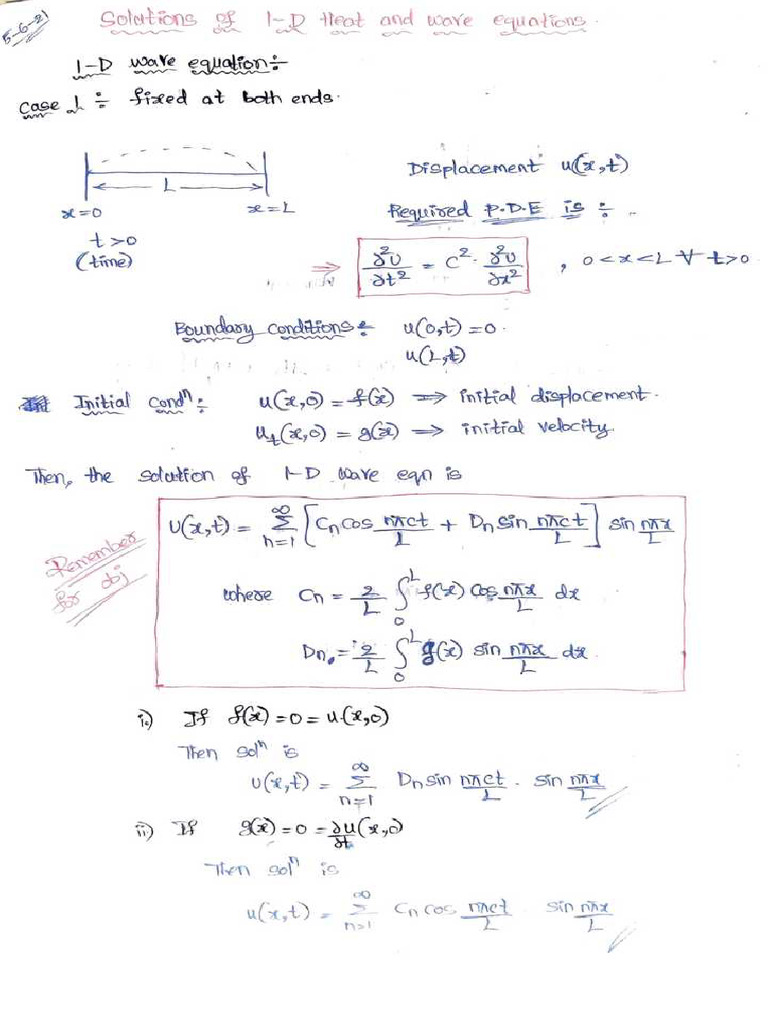 5-6-21
Solutions of 1-D Heat and wave equations.
1-D wave equation:-
Case 1 :- fixed at both ends.
L
x=0 x=L
t>0
(time)
Displacement u(x,t)
Required P.D.E is :-
⇒ ∂²u/∂t² = C² · ∂²u/∂x² , 0<x<L ∀ t>0
Boundary conditions:- u(0,t)=0.
u(L,t)
Initial Condⁿ:- u(x,0) = f(x) ⟹ initial displacement.
u_t(x,0) = g(x) ⟹ initial velocity.
Then, the solution of 1-D wave eqn is
Remember for obj
U(x,t) = ∑_{n=1}^{∞} [Cn cos nπct/L + Dn sin nπct/L] sin nπx/L
where Cn = 2/L ∫_0^L f(x) cos nπx/L dx
Dn = 2/L ∫_0^L g(x) sin nπx/L dx.
i) If f(x)=0=u(x,0)
Then solⁿ is
u(x,t) = ∑_{n=1}^{∞} Dn sin nπct/L · sin nπx/L
ii) If g(x)=0=∂u/∂t(x,0)
Then solⁿ is
u(x,t) = ∑_{n=1}^{∞} Cn cos nπct/L sin nπx/L